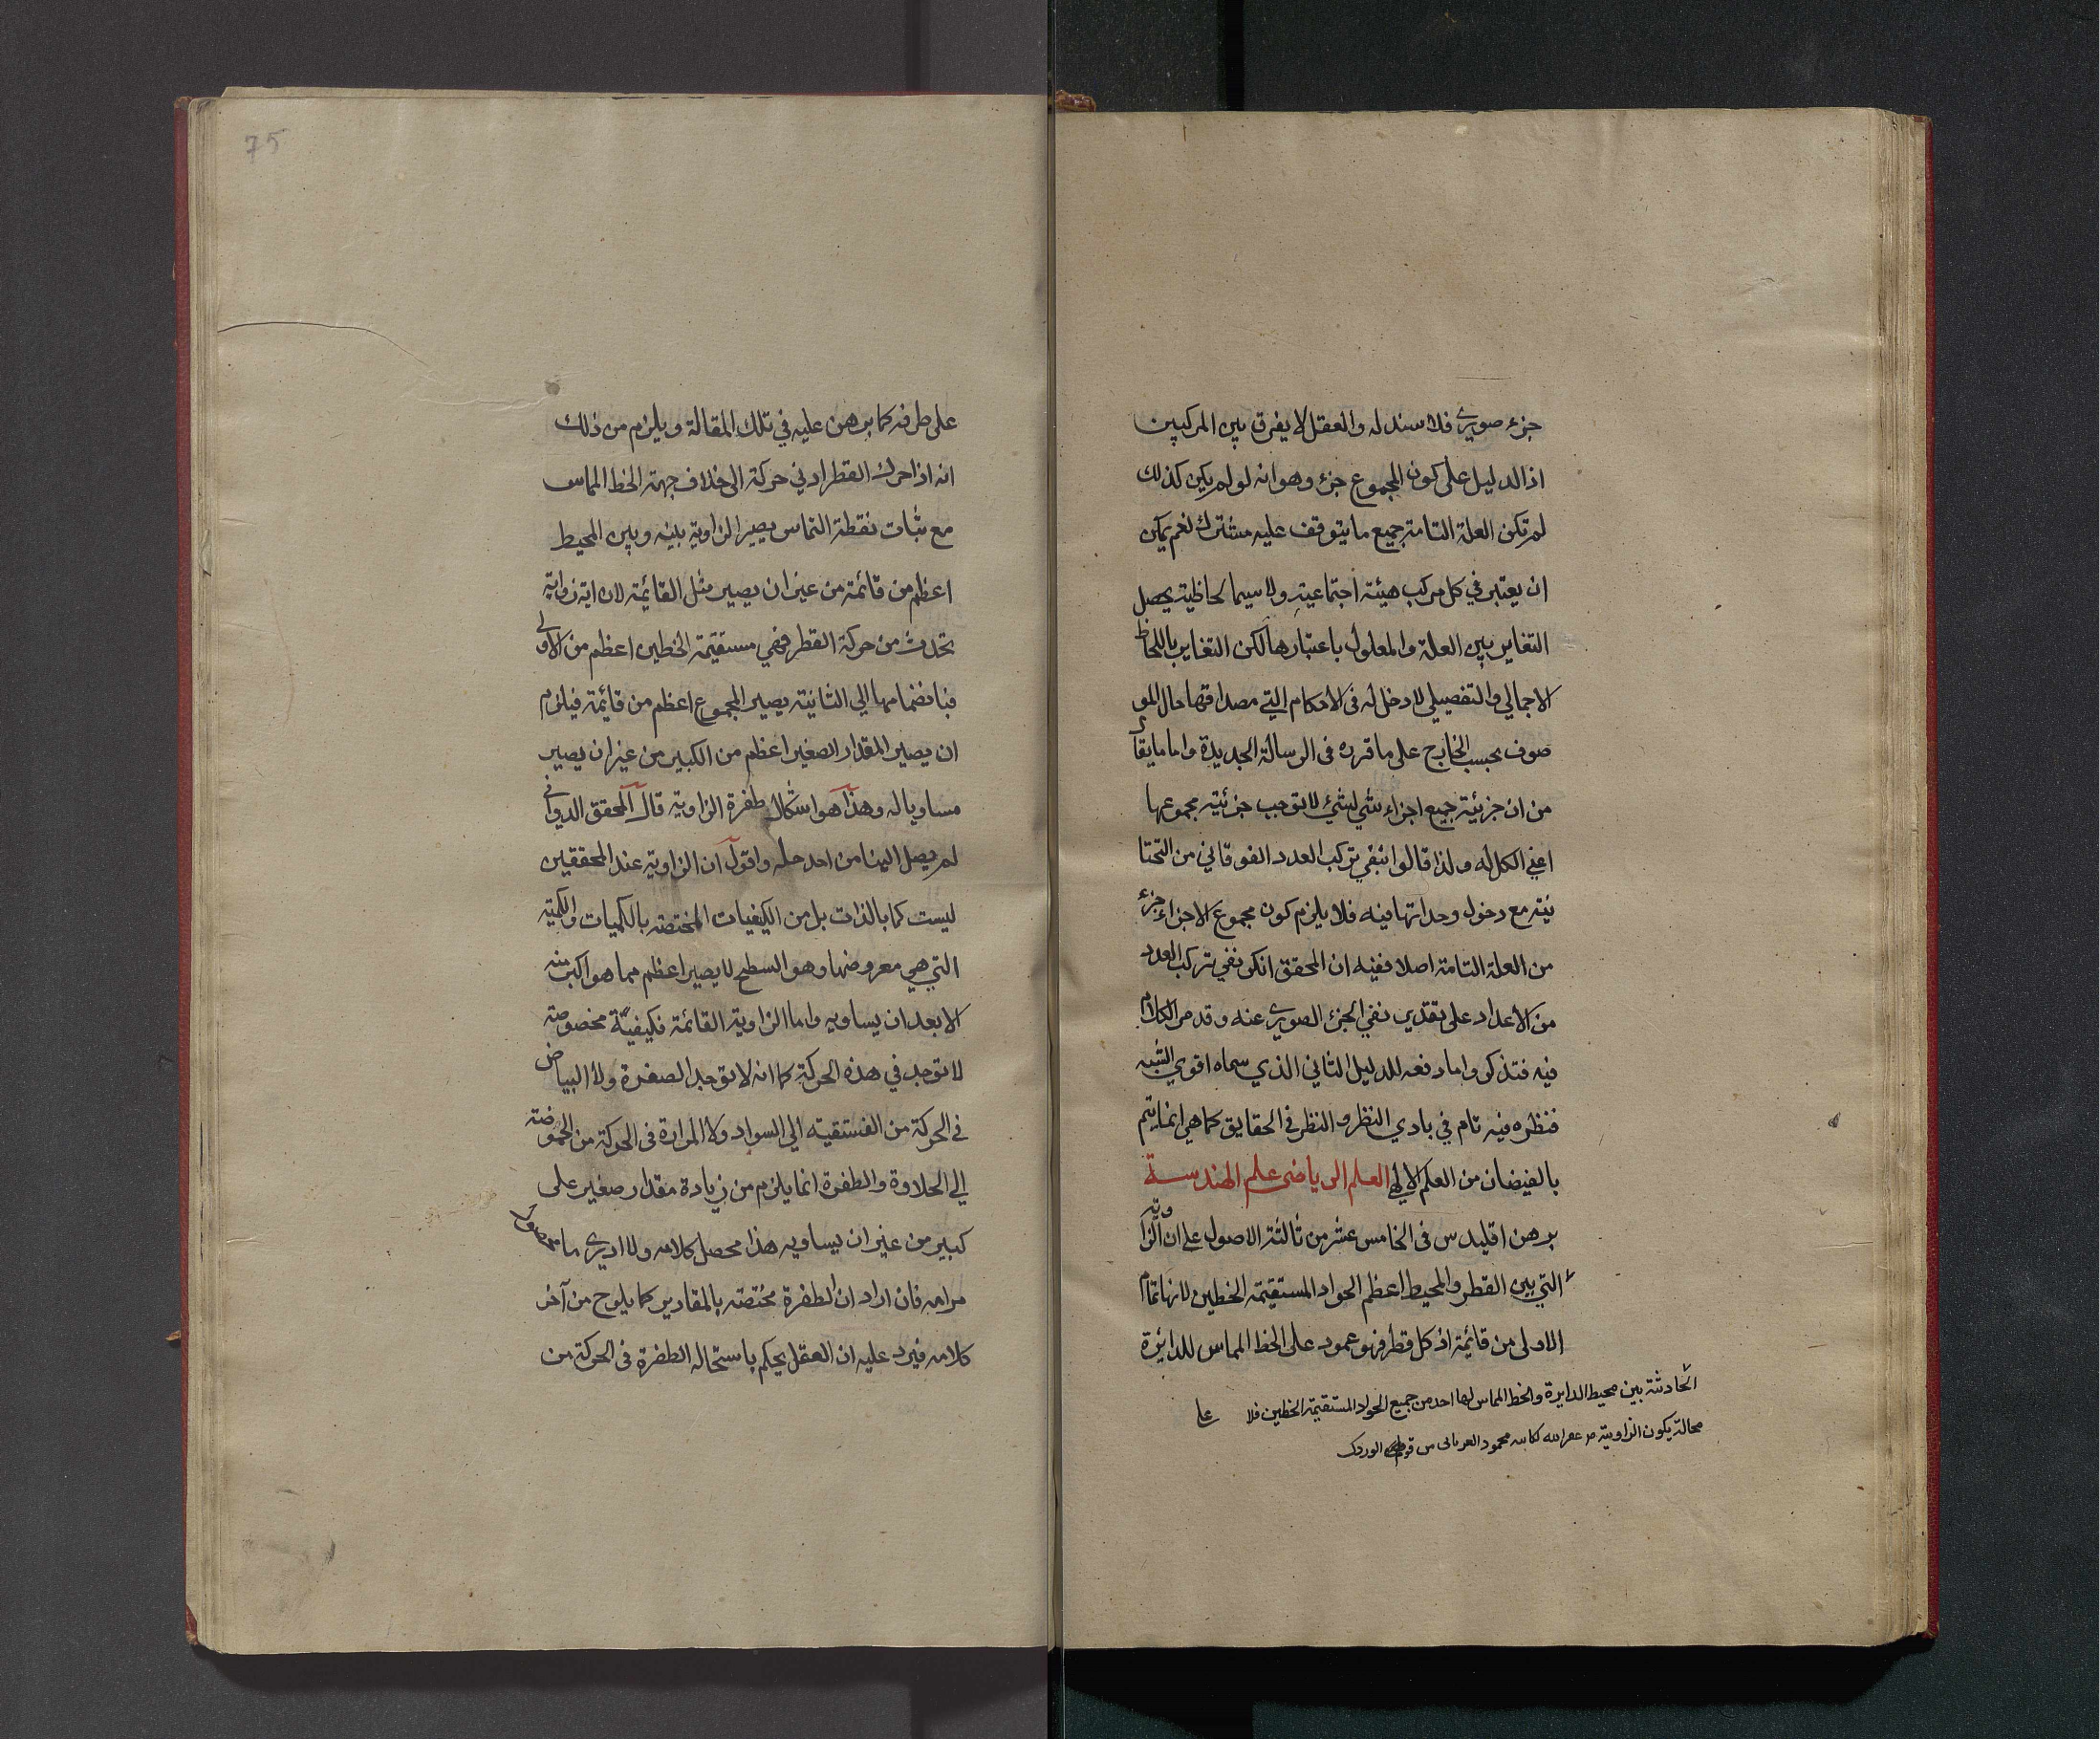 جزء صوري فلا سند له والعقل لا يفرق بين المركبين
اذ الدليل على كون المجموع جزء وهو انه لو لم يكن كذلك
لم تكن العلة التامة جميع ما يتوقف عليه مشترك نعم يمكن
ان يعتبر في كل مركب هيئة اجتماعية ولا سيما لحاظية يحصل
التغاير بين العلة والمعلول باعتبارها لكن التغاير باللحاظ
الاجمالي والتفصيلي لا دخل له في الاحكام التي مصداقها حال المو
صوف بحسب الخارج على ما قرره في الرسالة الجديدة واما ما يقال
من ان جزئية جميع اجزاء شي لشيء لا توجب جزئية مجموعها
اعني الكل له ولذا قالوا بنفي تركب العدد الفوقاني من التحتا
نية مع دخول وحداتها فيه فلا يلزم كون مجموع الاجزاء جزء
من العلة التامة اصلا ففيه ان المحقق انكر نفي تركب العدد
من الاعداد على تقدير نفي الجزء الصوري عنه وقد مر الكلام
فيه فتذكر واما دفعه للدليل الثاني الذي سماه اقوي الشبه
فنظره فيه تام في بادي النظر والنظر في الحقايق كما هي انما يتم
بالفيضان من العلم الالهي العلم الرياضي علم الهندسة
برهن اقليدس في الخامس عشر من ثالثة الاصول على ان الزاوية
التي بين القطر والمحيط اعظم الحواد المستقيمة الخطين لانها تمام
الاولى من قائمة اذ كل قطر فهو عمود على الخط المماس للدائرة
الحادثة بين محيط الدايرة والخط المماس لها احد من جميع الحواد المستقيمة الخطين فلا
محالة يكون الزاوية محمود
75
على طرفه كما برهن عليه في تلك المقالة ويلزم من ذلك
انه اذا حرك القطر ادني حركة الى خلاف جهة الخط المماس
مع ثبات نقطة التماس يصير الزاوية بينه وبين المحيط
اعظم من قائمة من غير ان يصير مثل القائمة لان اية زواية
تحدث من حركة القطر فهي مستقيمة الخطين اعظم من الاولى
فبانضمامها الي الثانية يصير المجموع اعظم من قائمة فيلزم
ان يصير المقدار الصغير اعظم من الكبير من غير ان يصير
مساويا له وهذا هو اشكال طفرة الزاوية قال المحقق الدواني
لم يصل الينا من احد حله واقول ان الزاوية عند المحققين
ليست كما بالذات بل من الكيفيات المختصة بالكميات والكمية
التي هي معروضها وهو السطح لا يصير اعظم مما هو اكبر منه
الا بعد ان يساويه واما الزاوية القائمة فكيفية مخصوصة
لا توجد في هذه الحركة كما انه لا توجد الصفرة ولا البياض
في الحركة من الفستقية الي السواد ولا المرارة في الحركة من الحموضة
الي الحلاوة والطفرة انما يلزم من زيادة مقدار صغير على
كبير من غير ان يساويه هذا محصل كلامه ولا ادري ما
مرامه فان اراد ان الطفرة مختصة بالمقادير كما يلوح من آخر
كلامه فيرد عليه ان العقل يحكم باستحالة الطفرة في الحركة من